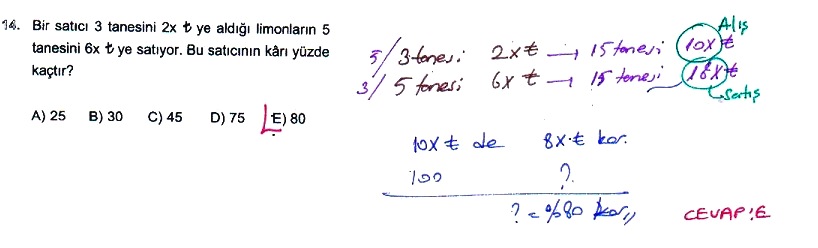 14. Bir satıcı 3 tanesini 2x ₺ ye aldığı limonların 5
tanesini 6x ₺ ye satıyor. Bu satıcının kârı yüzde
kaçtır?
A) 25 B) 30 C) 45 D) 75 E) 80
Alış
5/ 3 tanesi 2x ₺ → 15 tanesi 10x ₺
3/ 5 tanesi 6x ₺ → 15 tanesi 18x ₺
Satış
10x ₺ de 8x ₺ kar.
100 ?
? = %80 kar//
CEVAP: E